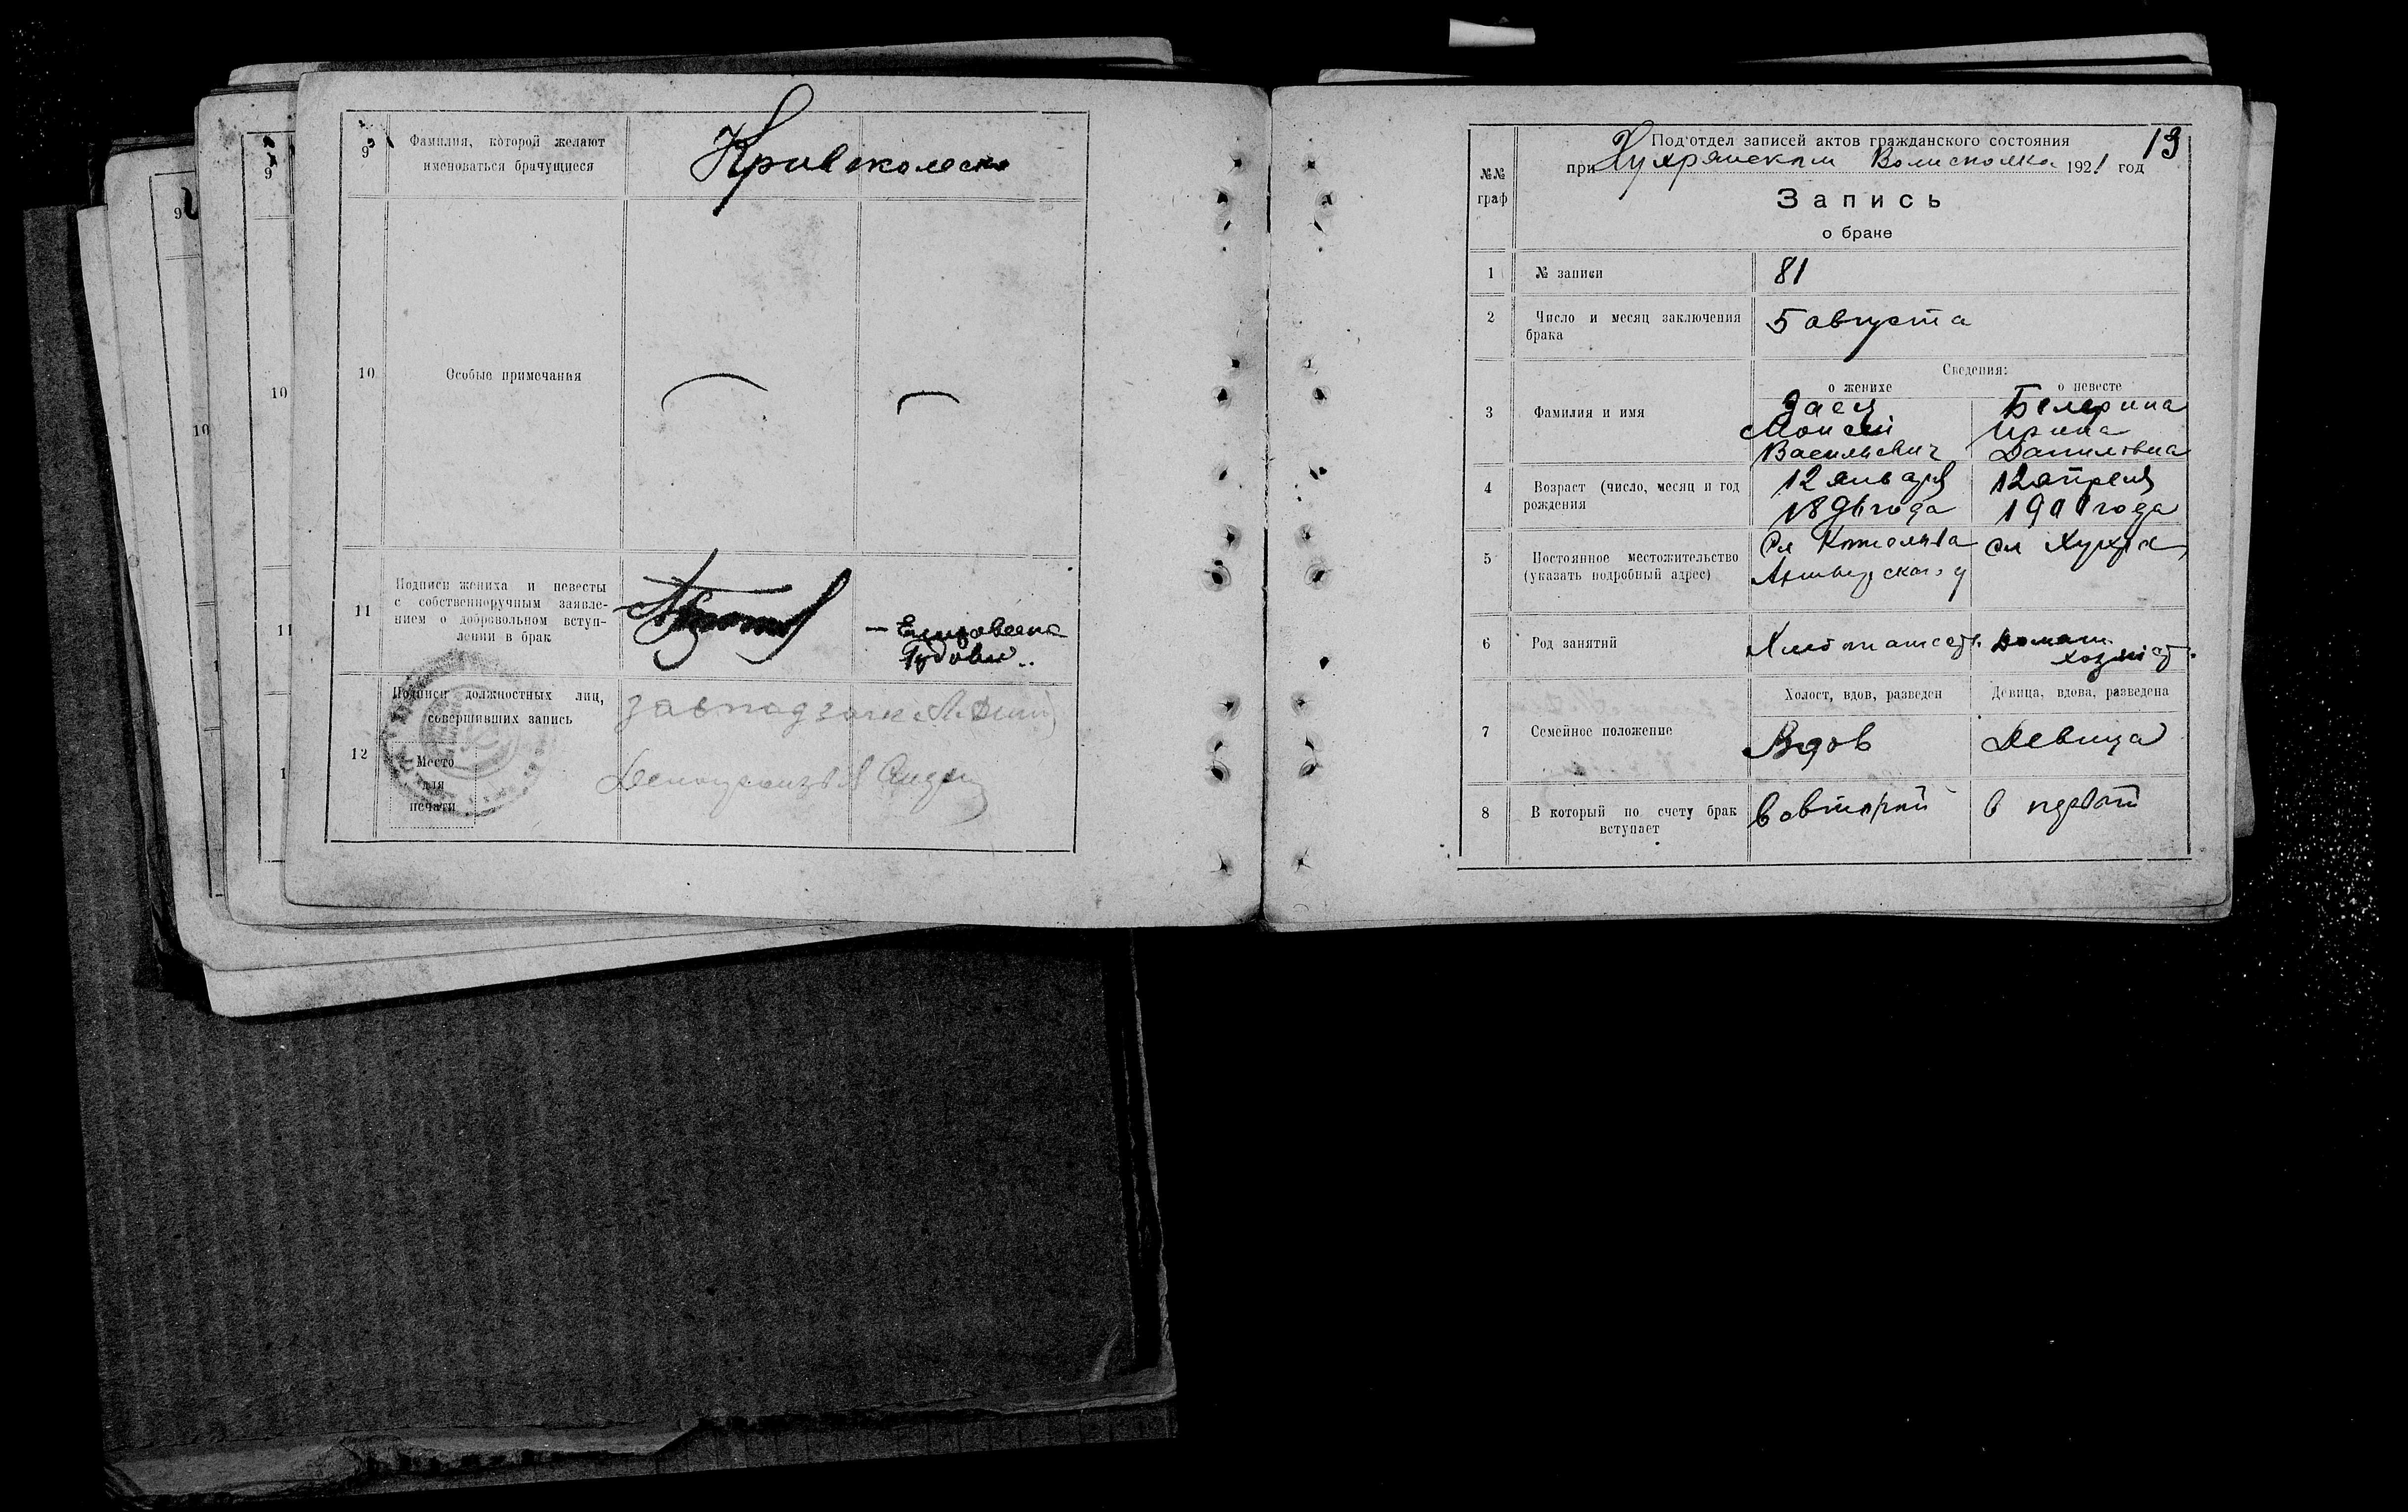 9
Фамилия, которой желают
именоваться брачущиеся
10
Особые примечания
11
Подписи жениха и невесты
с собственноручным заявле-
нием о добровольном вступ-
лении в брак
Елизавета
12
Подписи должностных лиц,
совершивших запись
Место
для
печати
9
10
11
9
10
13
Под'отдел записей актов гражданского состояния
при Хухрянском Волисполка 1921 год
№№
граф
Запись
о браке
1
№ записи
81
2
Число и месяц заключения
брака
5 августа
Сведения:
о женихе
о невесте
3
Фамилия и имя
Заец
Моисей
Васильевич
Ирина
Даниловна
4
Возраст (число, месяц и год
рождения
12 января
1896 года
12 апреля
190 года
5
Постоянное местожительство
(указать подробный адрес)
Сл Котельва
сл Хухра
6
Род занятий
Хлебопашест.
Домаш.
хозяйст.
7
Семейное положение
Холост, вдов, разведен
Девица, вдова, разведена
Вдов
Девица
8
В который по счету брак
вступает
во второй
в первой